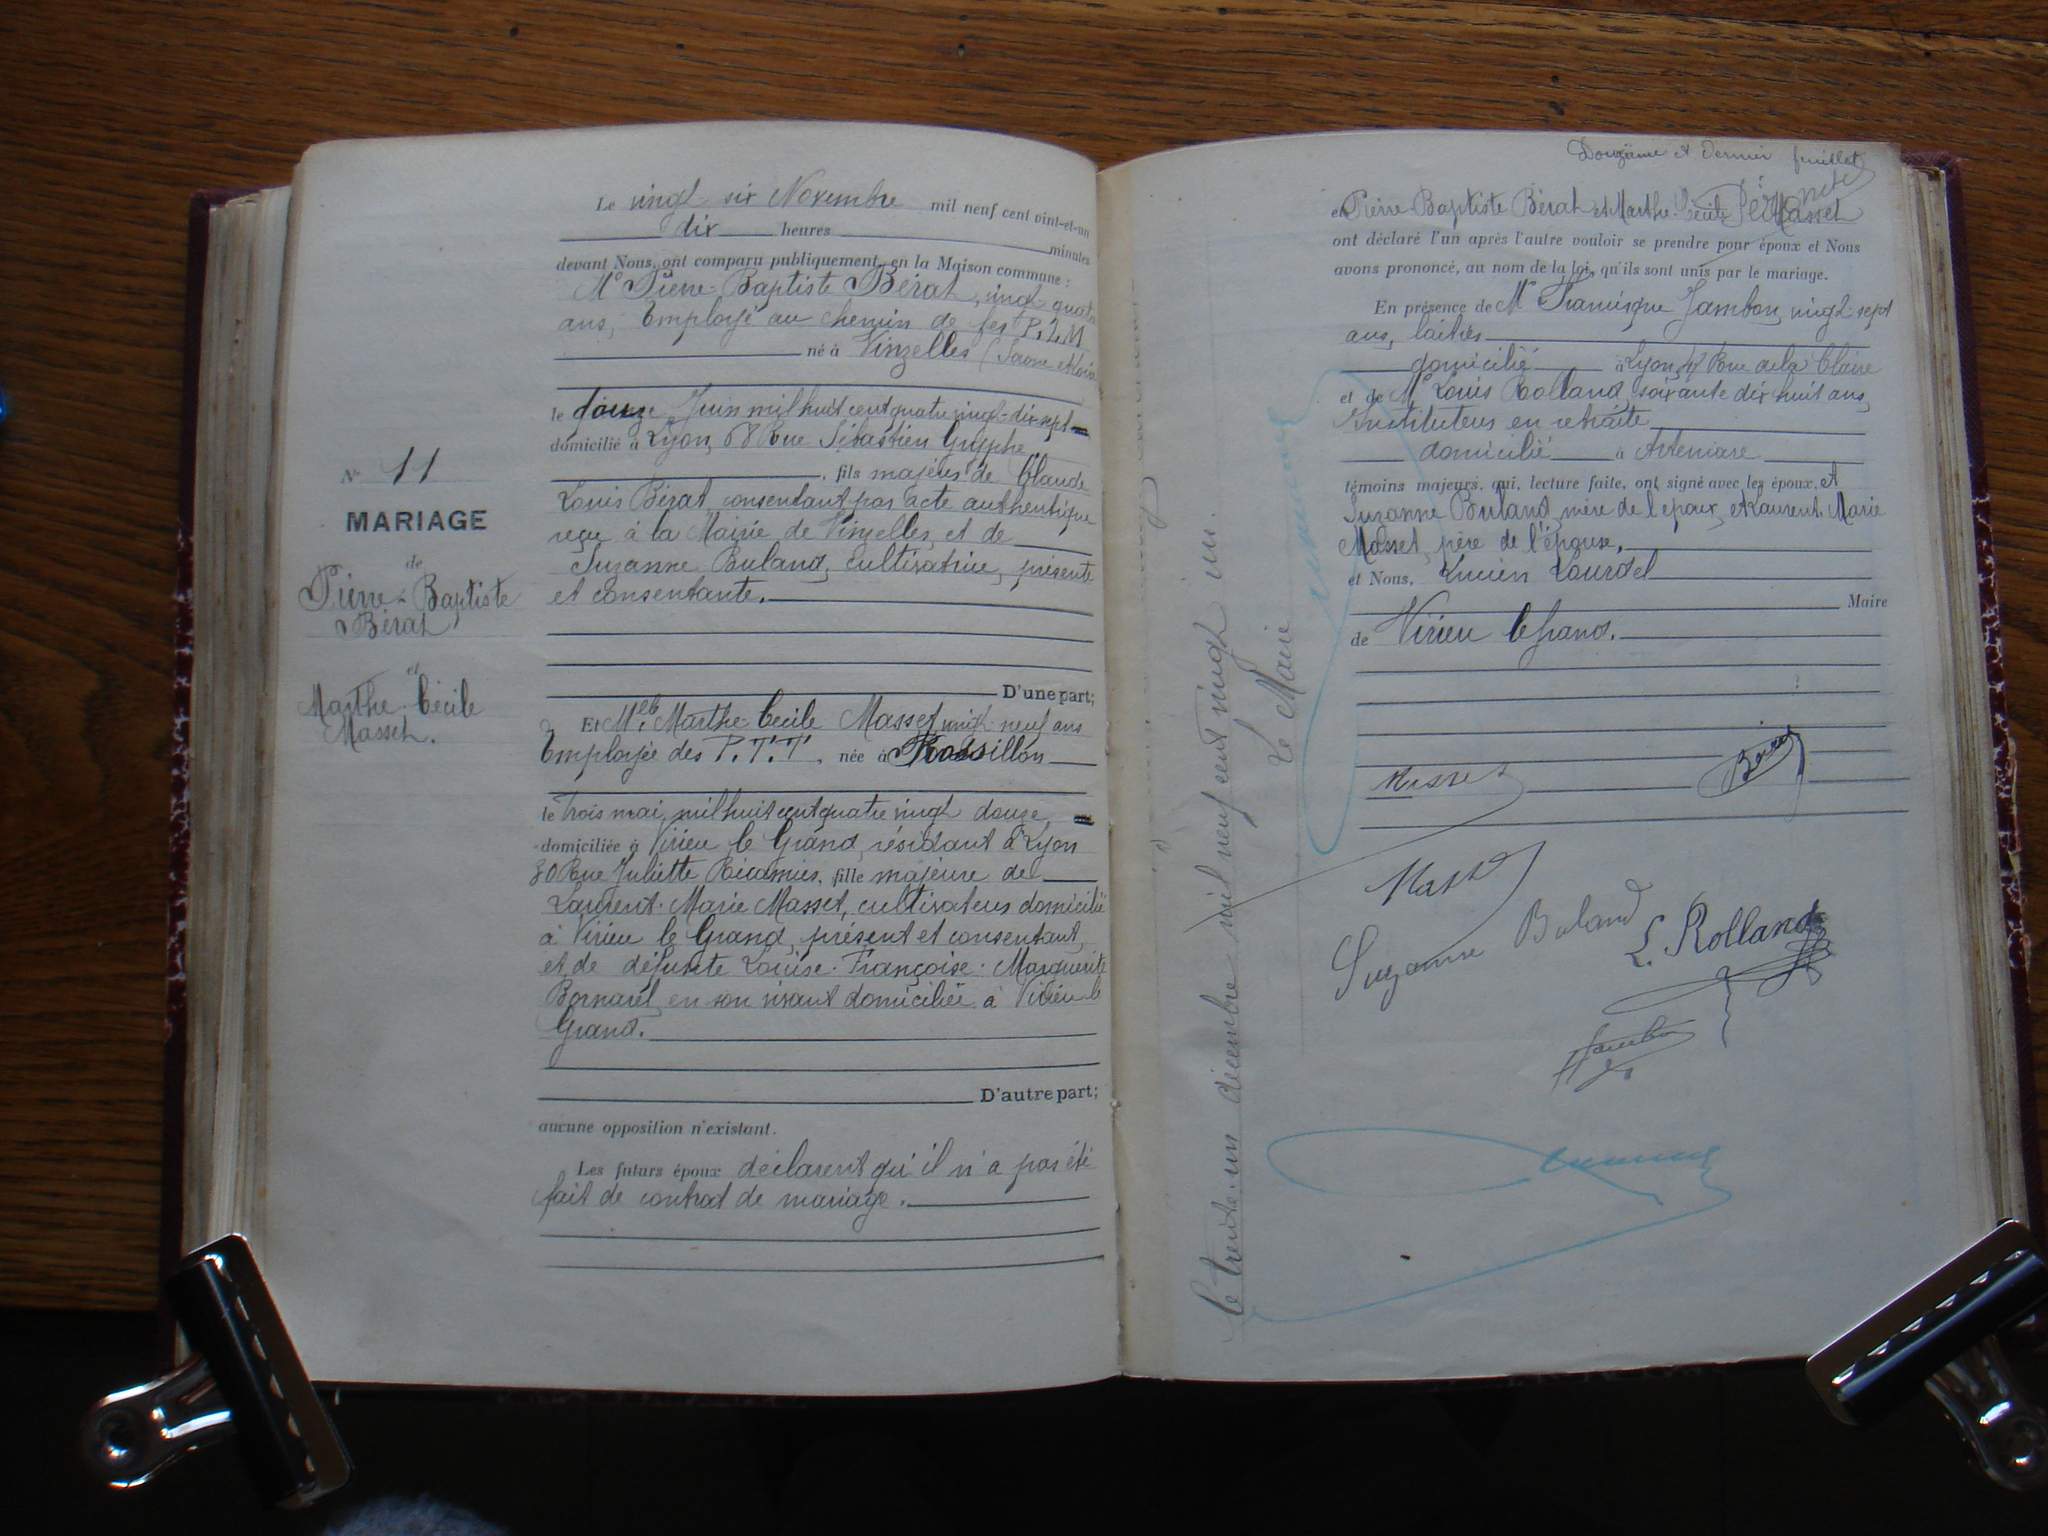 N° 11
MARIAGE
de
Pierre-Baptiste
Bérat
et
Marthe-Cécile
Masset.
Le vingt six Novembre mil neuf cent vint-et-un
dix heures minutes
devant Nous, ont comparu publiquement en la Maison commune :
Mr Pierre-Baptiste Bérat, vingt quatre
ans, Employé au chemin de fer P.L.M
né à Vinzelles (Saone et Loire
le douze Juin mil huit cent quatre vingt-dix sept
domicilié à Lyon, 68 Rue Sébastien Gryphe
, fils majeur de Claude
Louis Bérat, consentant par acte authentique
reçu à la Mairie de Vinzelles, et de
Suzanne Buland, cultivatrice, présente
et consentante.
D'une part;
Et Melle Marthe-Cécile Masset, vingt-neuf ans
Employée des P.T.T. née à Rossillon
le trois mai, mil huit cent quatre vingt douze
domiciliée à Virieu le Grand, résidant à Lyon
30 Rue Juliette Récamier, fille majeure de
Laurent-Marie Masset, cultivateur domicilié
à Virieu le Grand, présent et consentant,
et de défunte Louise-Françoise-Marguerite
Bornarel, en son vivant domiciliée à Virieu le
Grand.
D'autre part;
aucune opposition n'existant.
Les futurs époux déclarent qu'il n'a pas été
fait de contrat de mariage.
Douzième et dernier feuillet
et Pierre-Baptiste Bérat et Marthe-Cécile Masset
ont déclaré l'un après l'autre vouloir se prendre pour époux et Nous
avons prononcé, au nom de la loi, qu'ils sont unis par le mariage.
En présence de Mr Francisque Jambon, vingt-sept
ans, laitier
domicilié à Lyon, Rue de la Claire
et de Mr Louis Rolland, soixante dix huit ans,
Instituteur en retraite
domicilié à Artemare
témoins majeurs, qui, lecture faite, ont signé avec les époux, et
Suzanne Buland, mère de l'époux, et Laurent-Marie
Masset, père de l'épouse,
et Nous, Lucien Lourdel
Maire
de Virieu le Grand.
Masset
Bérat
Masset
Suzanne Buland
L. Rolland
Jambon
le trente-un décembre mil neuf cent vingt un.
Le Maire